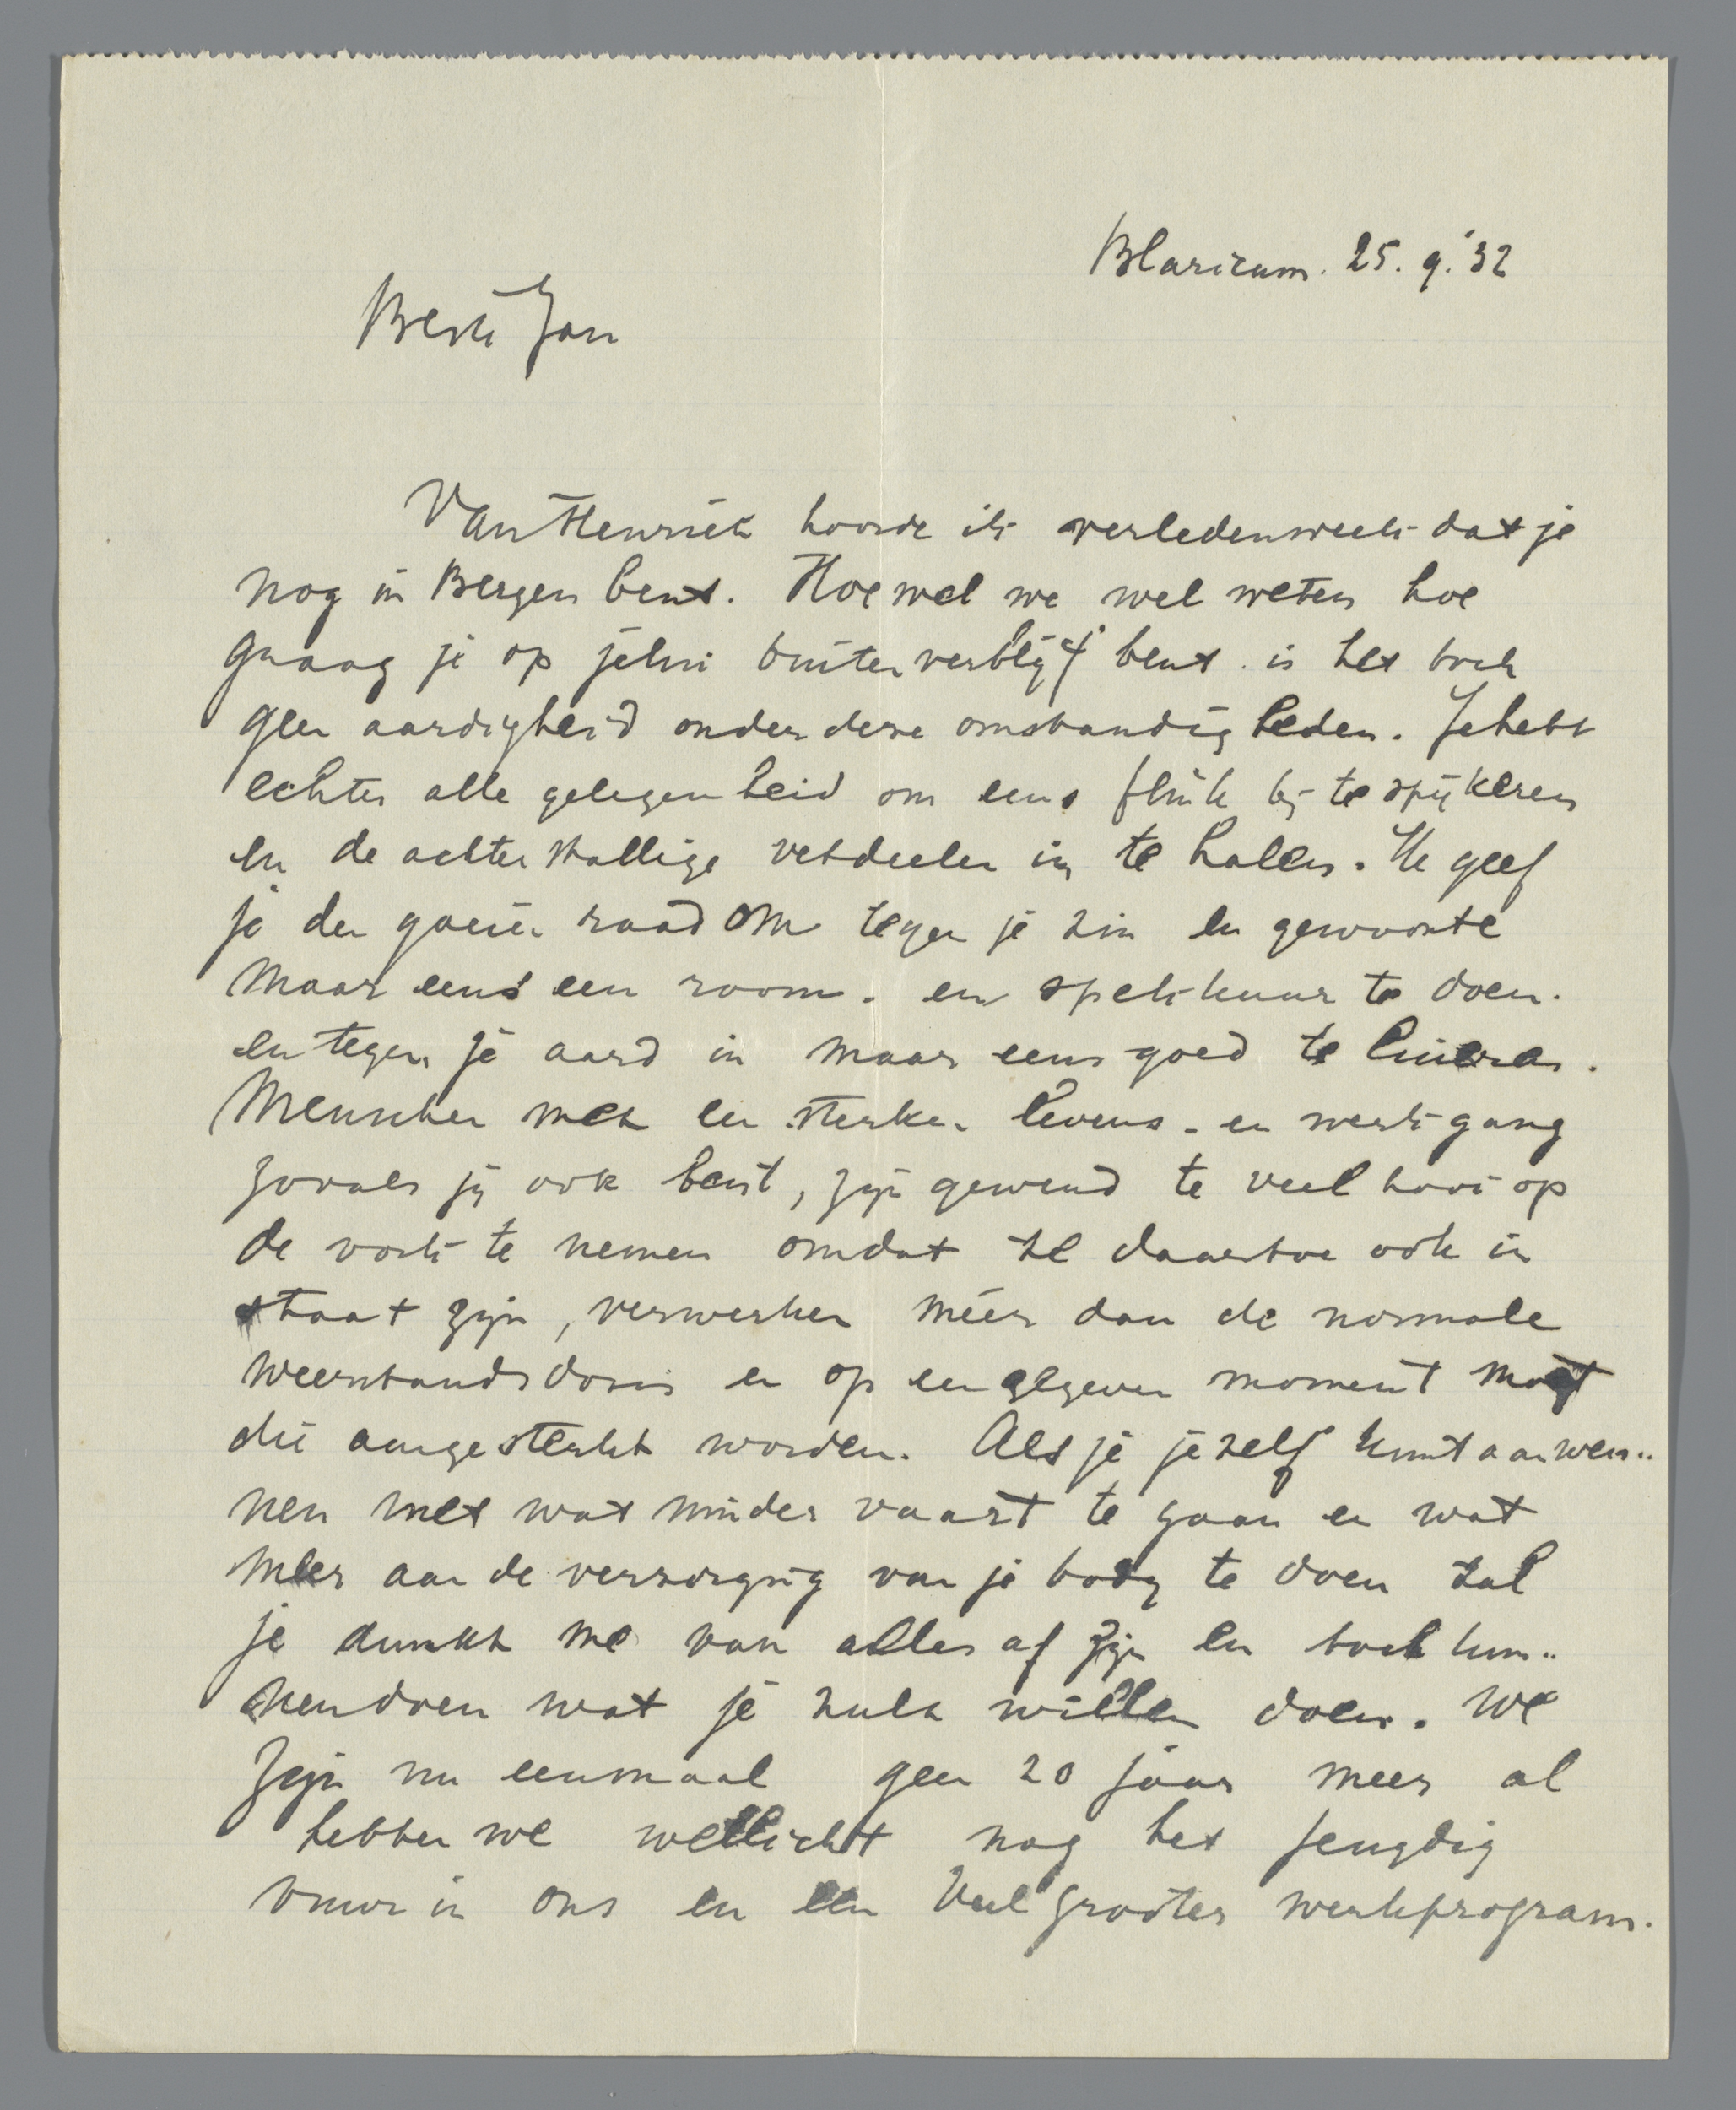 Blaricum. 25. 9. '32
Beste Jan
Van Henriëk hoorde ik verledenweek dat je
nog in Bergen bent. Hoewel we wel weten hoe
graag je op jelui buitenverblijf bent. is het toch
geen aardigheid onder deze omstandigheden. Je hebt
echter alle gelegenheid om eens flink bij te spijkeren
en de achterstallige vetdeelen in te halen. Ik geef
je den goeien raad om tegen je zin en gewoonte
maar eens een room- en spekkuur te doen.
en tegen je aard in maar eens goed te luieren.
Menschen met een sterken levens- en werkgang
zooals jij ook bent, zijn gewend te veel hooi op
de vork te nemen omdat ze daartoe ook in
staat zijn, verwerken méér dan de normale
weerstandsdosis en op een gegeven moment moet
die aangesterkt worden. Als je jezelf kunt aanwen..
nen met wat minder vaart te gaan en wat
meer aan de verzorging van je body te doen zal
je dunkt me van alles af zijn en toch kun..
nen doen wat je zult willen doen. We
zijn nu eenmaal geen 20 jaar meer al
hebben we wellicht nog het jeugdig
vuur in ons en een veel grooter werkprogram.